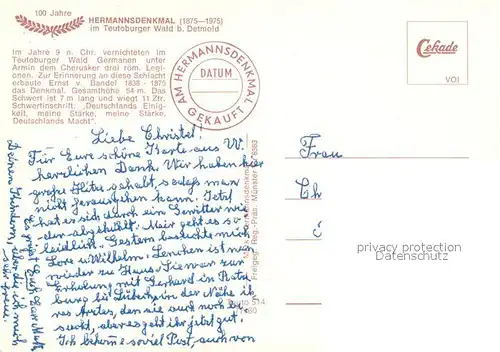 100 Jahre
HERMANNSDENKMAL (1875—1975)
im Teutoburger Wald b. Detmold
Im Jahre 9 n. Chr. vernichteten im
Teutoburger Wald Germanen unter
Armin dem Cherusker drei röm. Legi-
onen. Zur Erinnerung an diese Schlacht
erbaute Ernst v. Bandel 1838 - 1875
das Denkmal. Gesamthöhe 54 m. Das
Schwert ist 7 m lang und wiegt 11 Ztr.
Schwertinschrift: „Deutschlands Einig-
keit, meine Stärke, meine Stärke,
Deutschlands Macht".
AM HERMANNSDENKMAL
DATUM
GEKAUFT
Cekade
VOI
Liebe Christel!
Für Eure schöne Karte aus W.
herzlichen Dank. Wir haben hier
große Hitze gehabt, sodaß man
nicht herausgehen kann. Jetzt
hat es sich durch ein Gewitter wie-
der abgekühlt. Mir geht es so
leidlich. Gestern besuchte mich
Lore u. Wilhelm. Lenchen ist nun
wieder zu Haus. Sie war zur
Erholung mit Gerhard in Ratze
burg bei Lübeck in der Nähe ih
res Arztes, den sie auch noch be
sucht, aber es geht ihr jetzt gut.
Ich bekomme soviel Post, auch von
Deinen Kindern, über die ich mich
sehr freue.
Es grüßt Euch
Frau
Ch
privacy protection
Datenschutz
Freigeg. Reg.-Präs. Münster